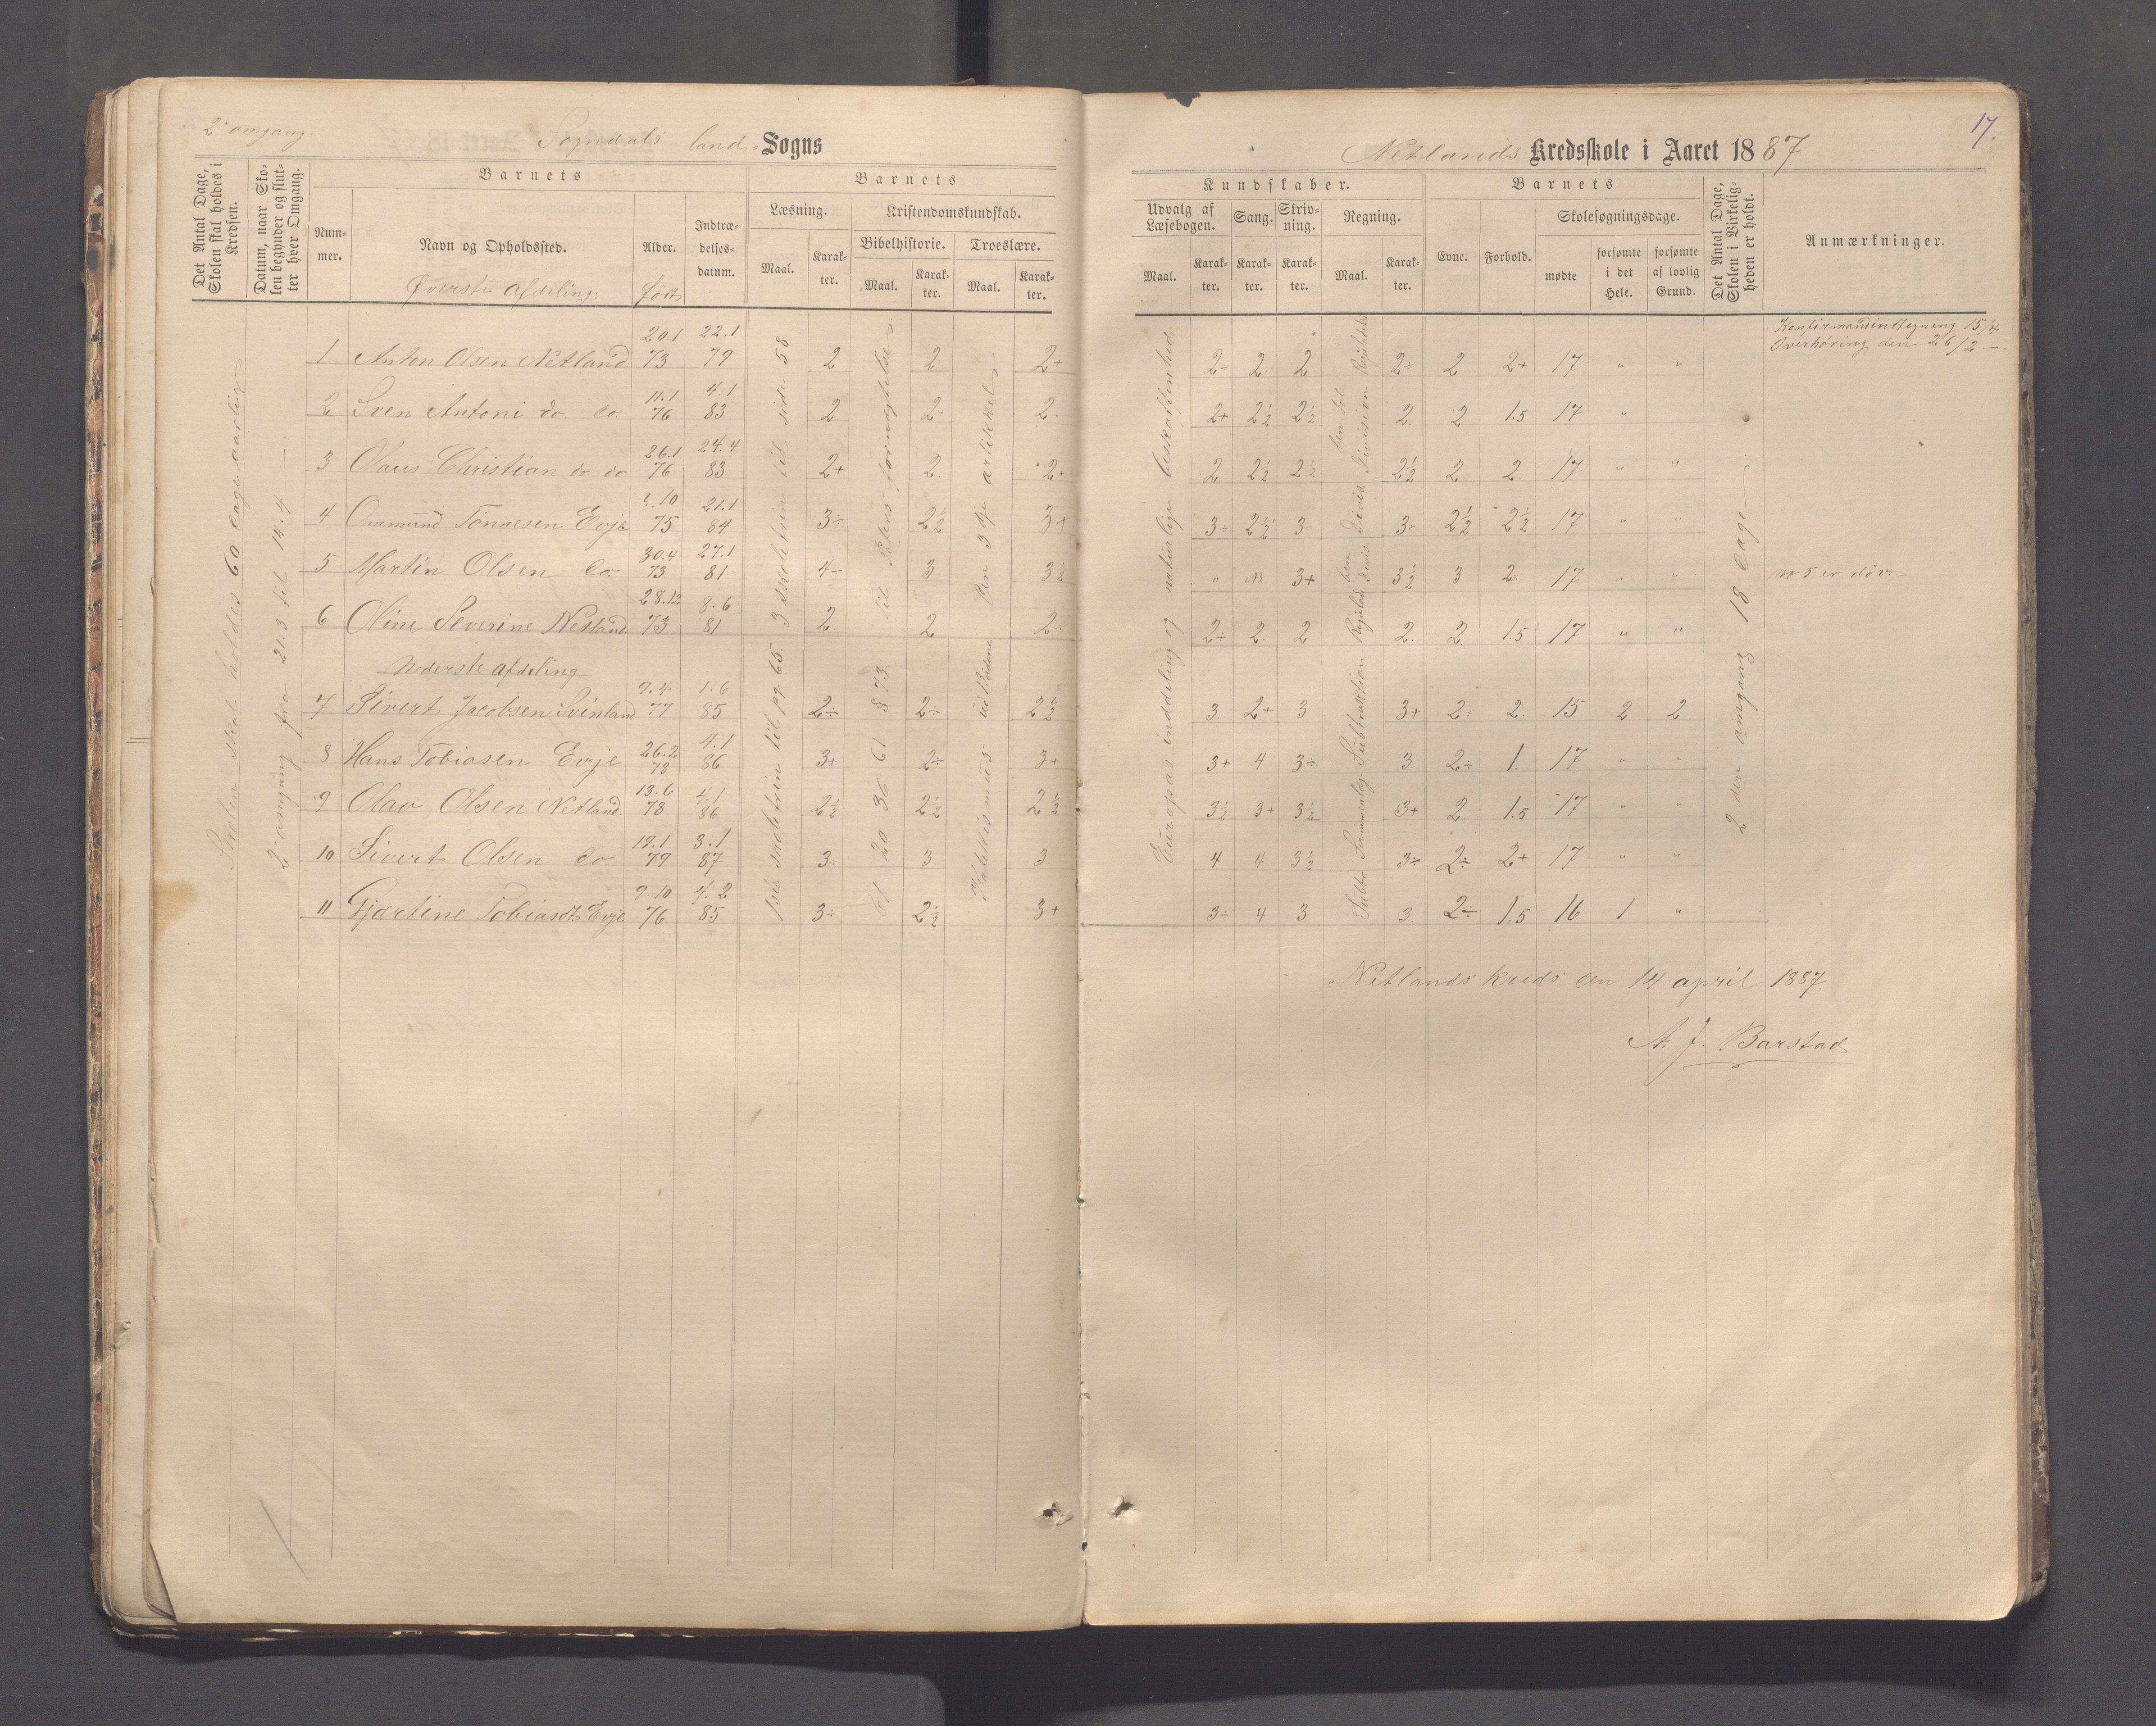 2 omgang
Sogndals land Sogns
Netlands Kredsskole i Aaret 1887
17.
Det Antal Dage, Skolen skal holdes i Kredsen.
Datum, naar Skolen begynder og slutter hver Omgang.
Barnets
Nummer.
Navn og Opholdssted.
Øverste afdeling.
Alder.
født
Indtrædelsesdatum.
Barnets
Læsning.
Maal.
Karakter.
Kristendomskundskab.
Bibelhistorie.
Maal.
Karakter.
Troeslære.
Maal.
Karakter.
Kundskaber.
Udvalg af Læsebogen.
Maal.
Karakter.
Sang.
Karakter.
Skrivning.
Karakter.
Regning.
Maal.
Karakter.
Barnets
Evne.
Forhold.
Skolesøgningsdage.
mødte
forsømte i det Hele.
forsømte af lovlig Grund.
Det Antal Dage, Skolen i Virkeligheden er holdt.
Anmærkninger.
Skolen skal holdes 60 dage aarlig
2 omgang fra 21.3 til 14.4
3 skoletrin til side 58
til Peters fornægtelse
den 3 die artikkel
Europas inddeling og naturlige beskaffenhed
2 den omgang 18 dage
Konfirmandindtegning 15/4
Overhøring den 26/2
1 Anton Olsen Netland 20.1 73 22.1 77 2 2 2+ 2÷ 2. 2 2÷ 2 2+ 17 " "
2 Sven Antoni do. do. 11.1 76 4.1 83 2 2. 2. 2+ 2½ 2½ 2 2 1.5 17 "
3 Olaus Christian do do 26.1 76 24.4 83 2+ 2 2+ 2 2½ 2½ 2½ 2 2 17 " "
4 Ommund Tønnesen Evje 10 75 21.1 84 3÷ 2½ 3+ 3÷ 2½ 3 3 2½ 2½ 17 " "
5 Martin Olsen do. 30.4 73 27.1 81 4 3 3½ " 3+ 3½ 3 2 17 " " no 5 er døv.
6 Oline Severine Netland 28.12 73 8.6 81 2 2 2 2÷ 2. 2 2. 2 1.5 17 " "
Nederste afdeling
skoletrin til pg 65.
7 Sivert Jacobsen Svinland 7.4 77 1.6 85 2÷ 2÷ 2½ 3. 2+ 3 3+ 2 2 15 2 2
8 Hans Tobiasen Evje 26.2 78 4.1 86 3+ 2÷ 3+ 3+ 4 3÷ 3. 2÷ 1. 17 " "
9 Olav Olsen Netland 13.6 78 4.1 86 2½ 2½ 2½ 3½ 3+ 3½ 3+ 2 1.5 17 " "
10 Sivert Olsen do 19.1 79 3.1 87 3 3 3 4 4 3½ 3÷ 2÷ 2+ 17 " "
11 Gjærtine Tobiasdt Evje 9.10 76 4.2 85 3÷ 2½ 3+ 3÷ 4 3 3. 2÷ 1.5 16 1 "
Netlands kreds den 14 april 1887.
A. J. Barstad